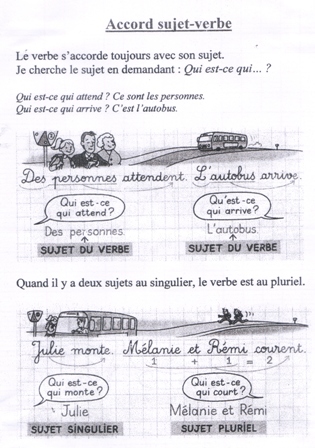 Accord sujet-verbe
Le verbe s'accorde toujours avec son sujet.
Je cherche le sujet en demandant : Qui est-ce qui... ?
Qui est-ce qui attend ? Ce sont les personnes.
Qui est-ce qui arrive ? C'est l'autobus.
Des personnes attendent. L'autobus arrive.
Qui est-ce qui attend ?
Qu'est-ce qui arrive ?
Des personnes. L'autobus.
SUJET DU VERBE SUJET DU VERBE
Quand il y a deux sujets au singulier, le verbe est au pluriel.
Julie monte. Mélanie et Rémi courent.
1 + 1 = 2
Qui est-ce qui monte ?
Qui est-ce qui court ?
Julie Mélanie et Rémi
SUJET SINGULIER SUJET PLURIEL